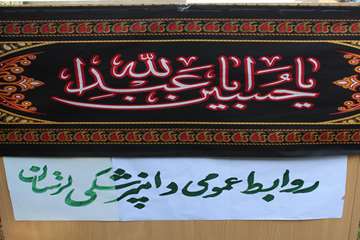 یا اباعبدالله حسین
روابط عمومی دامپزشکی لرستان